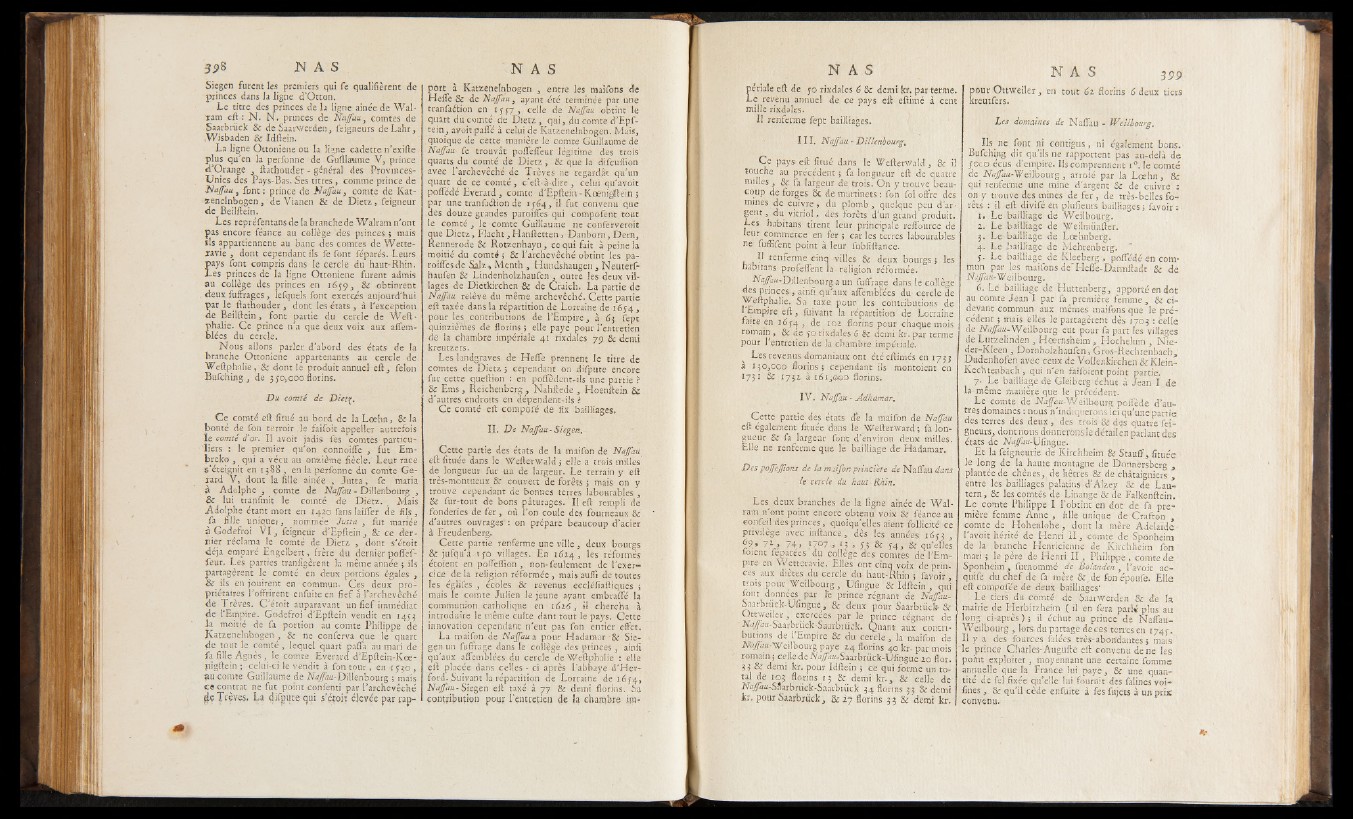 398 N A S
Siegen furent les premiers qui se qualifièrent de
princes dans la ligne d'Otton.
Le titre des princes de la ligne ainée de Wal-
ram est : N. N. princes de Nassau, comtes de
Saarbruck & de Saarwerden, seigneurs de Lahr,
Wisbaden & Idstein.
La ligne Ottoniene ou la ligne cadette n'existe
plus qu'en la personne de Guillaume V, prince
d'Orange, stathouder-général des Provinces-
Unies des Pays-Bas. Ses titres, comme prince de
Nassau, sont : prince de Nassau, comte de Kat-
zenelnbogen, de Vianen & de Dietz, seigneur
de Beilstein.
Les représentans de la branche de Walram n'ont
pas encore séance au collège des princes ; mais
ils appartiennent au banc des comtes de Wette-
ravie, dont cependant ils se sont séparés. Leurs
pays sont compris dans le cercle du haut-Rhin.
Les princes de la ligne Ottoniene furent admis
au collège des princes en 1659, & obtinrent
deux suffrages, lesquels sont exercés aujourd'hui
par le stathouder, dont les états, à l'exception
de Beilstein, font partie du cercle de West-
phalie. Ce prince n'a que deux voix aux assem-
blées du cercle.
Nous allons parler d'abord des états de la
branche Ottoniene appartenants au cercle de
Westphalie, & dont le produit annuel est, selon
Busching, de 350,000 florins.
Du comté de Dietz.
Ce comté est situé au bord de la Lœhn, & la
bonté de son terroir le faisoit appeller autrefois
le comté d'or. Il avoit jadis ses comtes particu-
liers : le premier qu'on connoisse, fut Em-
bricko, qui a vécu au onzième siècle. Leur race
s'éteignit en 1388, en la personne du comte Ge-
rard V, dont la fille ainée, Jutta, se maria
à Adolphe, comte de Nassau-Dillenbourg,
& lui transmit le comté de Dietz. Mais
Adolphe étant mort en 1420 sans laisser de fils,
sa fille unique, nommée Jutta, fut mariée
à Godefroi VI, seigneur d'Epstein, & ce der-
nier réclama le comté de Dietz, dont s'étoit
déja emparé Engelbert, frère du dernier posses-
seur. Les parties transigèrent la même année ; ils
partagèrent le comté en deux portions égales,
& ils en jouirent en commun. Ces deux pro-
priétaires l'offrirent ensuite en fief à l'archevêché
de Trèves. C'étoit auparavant un fief immédiat
de l'Empire. Godefroi d'Epstein vendit en 1453
la moitié de sa portion au comte Philippe de
Katzenelnbogen, & ne conserva que le quart
de tout le comté, lequel quart passa au mari de
sa fille Agnès, le comte Everard d'Epstein-Kœ-
nigstein ; celui-ci le vendit à son tour, en 1530,
au comte Guillaume de Nassau-Dillenbourg ; mais
ce contrat ne fut point consenti par l'archevêché
de Trèves. La dispute qui s'étoit élevée par rap-
N A S
port à Katzenelnbogen, entre les maisons de
Hesse & de Nassau, ayant été terminée par une
transaction en 1557, celle de Nassau obtint le
quart du comté de Dietz, qui, du comte d'Eps-
tein, avoit passé à celui de Katzenelnbogen. Mais,
quoique de cette manière le comte Guillaume de
Nassau se trouvât possesseur légitime des trois
quarts du comté de Dietz, & que la discussion
avec l'archevêché de Trèves ne regardât qu'un
quart de ce comté, c'est-à-dire, celui qu'avoit
possédé Everard, comte d'Epstein-Kœnigstein ;
par une transaction de 1564, il fut convenu que
des douze grandes paroisses qui composent tout
le comté, le comte Guillaume ne conserveroit
que Dietz, Flacht, Hanstetten, Dauborn, Dern,
Rennerode & Rotzenhayn, ce qui fait à peine la
moitié du comté ; & l'archevêché obtint les pa-
roisses de Salz, Menth, Hundshaugen, Neuterf-
hausen & Lindenholzhausen, outre les deux vil-
lages de Dietkirchen & de Craich. La partie de
Nassau relève du même archevêché. Cette partie
est taxée dans la répartition de Lorraine de 1654,
pour les contributions de l'Empire, à 63 sept
quinzièmes de florins ; elle paye pour l'entretien
de la chambre impériale 41 rixdales 79 & demi
kreutzers.
Les landgraves de Hesse prennent le titre de
comtes de Dietz ; cependant on dispute encore
sur cette question : en possèdent-ils une partie ?
& Ems, Reichenberg, Nahstede, Hoenstein &
d'autres endroits en dépendent-ils ?
Ce comté est composé de six bailliages.
II. De Nassau-Siegen.
Cette partie des états de la maison de Nassau
est située dans le Westerwald ; elle a trois milles
de longueur sur un de largeur. Le terrain y est
très-montueux & couvert de forêts ; mais on y
trouve cependant de bonnes terres labourables,
& sur-tout de bons pâturages. Il est rempli de
fonderies de fer, où l'on coule des fourneaux &
d'autres ouvrages : on prépare beaucoup d'acier
à Freudenberg.
Cette partie renferme une ville, deux bourgs
& jusqu'à 150 villages. En 1624, les réformés
étoient en possession, non-seulement de l'exer-
cice de la religion réformée, mais aussi de toutes
les églises, écoles & revenus ecclésiastiques ;
mais le comte Julien le jeune ayant embrassé la
communion catholique en 1626, il chercha à
introduire le même culte dans tout le pays. Cette
innovation cependant n'eut pas son entier effet.
La maison de Nassau a pour Hadamar & Sie-
gen un suffrage dans le collège des princes, ainsi
qu'aux assemblées du cercle de Westphalie : elle
est placée dans celles-ci après l'abbaye d'Her-
ford. Suivant la répartition de Lorraine de 1654,
Nassau-Siegen est taxé à 77 & demi florins. Sa
contribution pour l'entretien de la chambre im-
N A S
périale est de 50 rixdales 6 & demi kr. par terme.
Le revenu annuel de ce pays est estimé à cent
mille rixdales.
Il renferme sept bailliages.
III. Nassau-Dillenbourg.
Ce pays est situé dans le Westerwald, & il
touche au précédent ; sa longueur est de quatre
milles, & sa largeur de trois. On y trouve beau-
coup de forges & de martinets : son sol offre des
mines de cuivre, du plomb, quelque peu d'ar-
gent, du vitriol, des forêts d'un grand produit.
Les habitans tirent leur principale ressource de
leur commerce en fer ; car les terres labourables
ne suffisent point à leur subsistance.
Il renferme cinq villes & deux bourgs ; les
habitans professent la religion réformée.
Nassau-Dillenbourg a un suffrage dans le collège
des princes, ainsi qu'aux assemblées du cercle de
Westphalie. Sa taxe pour les contributions de
l'Empire est, suivant la répartition de Lorraine
faite en 1654, de 102 florins pour chaque mois
romain, & de 50 rixdales 6 & demi kr. par terme
pour l'entretien de la chambre impériale.
Les revenus domaniaux ont été estimés en 1733
à 130,000 florins ; cependant ils montoient en
1731 & 1732 à 161,000 florins.
IV. Nassau-Adhamar.
Cette partie des états de la maison de Nassau
est également située dans le Westerward ; sa lon-
gueur & sa largeur sont d'environ deux milles.
Elle ne renferme que le bailliage de Hadamar.
Des possessions de la maison princière de Nassau dans
le cercle du haut Rhin.
Les deux branches de la ligne ainée de Wal-
ram n'ont point encore obtenu voix & séance au
conseil des princes, quoiqu'elles aient sollicité ce
privilège avec instance, dès les années 1653,
69, 72, 74, 1707, 13, 53 & 54, & qu'elles
soient séparées du collège des comtes de l'Em-
pire en Wetteravie. Elles ont cinq voix de prin-
ces aux diètes du cercle du haut-Rhin ; savoir,
trois pour Weilbourg, Usingue & Idstein, qui
sont données par le prince régnant de Nassau-
Saarbrück-Usingue, & deux pour Saarbruck &
Ottweiler, exercées par le prince régnant de
Nassau-Saarbrück-Saarbrück. Quant aux contri-
butions de l'Empire & du cercle, la maison de
Nassau-Weilbourg paye 24 florins 40 kr. par mois
romain ; celle de Nassau-Saarbrück-Usingue 20 flor.
33 & demi kr. pour Idstein ; ce qui forme un to-
tal de 103 florins 13 & demi kr., & celle de
Nassau-Saarbruck-Saarbrück 34 florins 33 & demi
kr. pour Saarbrück, & 27 florins 33 & demi kr.
N A S 399
pour Ottweiler, en tout 62 florins 6 deux tiers
kreutsers.
Les domaines de Nassau-Weilbourg.
Ils ne sont ni contigus, ni également bons.
Busching dit qu'ils ne rapportent pas au-delà de
5000 écus d'empire. Ils comprennent 1°. le comté
de Nassau-Weilbourg, arrosé par la Lœhn, &
qui renferme une mine d'argent & de cuivre :
on y trouve des mines de fer, de très-belles fo-
rêts : il est divisé en plusieurs bailliages ; savoir :
1. Le bailliage de Weilbourg.
2. Le bailliage de Weilmünster.
3. Le bailliage de Lœhnberg.
4. Le bailliage de Mehrenberg.
5. Le bailliage de Kleeberg, possédé en com-
mun par les maisons de Hesse-Darmstadt & de
Nassau-Weilbourg.
6. Le bailliage de Huttenberg, apporté en dot
au comte Jean I par sa première femme, & ci-
devant commun aux mêmes maisons que le pré-
cédent ; mais elles le partagèrent dès 1703 : celle
de Nassau-Weilbourg eut pour sa part les villages
de Lutzelinden, Hœrnsheim, Hochelnn, Nie-
der-Kleen, Dornholzhausen, Gros-Rechtenbach,
Dudenhofen avec ceux de Vollenkirchen & Klein-
Rechtenbach, qui n'en faisoient point partie.
7. Le bailliage de Gleiberg échut à Jean I de
la même manière que le précédent.
Le comte de Nassau-Weilbourg possède d'au-
tres domaines : nous n'indiquerons ici qu'une partie
des terres des deux, des trois & des quatre sei-
gneurs, dont nous donnerons le détail en parlant des
états de Nassau-Usingue.
Et la seigneurie de Kirchheim & Stauff, située
le long de la haute montagne de Donnersberg,
plantée de chênes, de hêtres & de châtaigniers,
entre les bailliages palatins d'Alzey & de Lau-
tern, & les comtés de Linange & de Falkenstein.
Le comte Philippe I l'obtint en dot de sa pre-
mière femme Anne, fille unique de Crafton,
comte de Hohenlohe, dont la mère Adelaïde
l'avoit hérité de Henri II, comte de Sponheim
de la branche Henricienne de Kirchheim son
mari ; le père de Henri II, Philippe, comte de
Sponheim, surnommé de Bolanden, l'avoit ac-
quise du chef de sa mère & de son épouse. Elle
est composée de deux bailliages
Le tiers du comté de Saarwerden & de la
mairie de Herbitzheim (il en sera parlé plus au
long ci-après) ; il échut au prince de Nassau-
Weilbourg, lors du partage de ces terres en 1745.
Il y a des sources salées très-abondantes ; mais
le prince Charles-Auguste est convenu de ne les
point exploiter, moyennant une certaine somme
annuelle que la France lui paye, & une quan-
tité de sel fixée qu'elle lui fournit des salines voi-
sines, & qu'il cède ensuite à ses sujets à un prix
convenu.